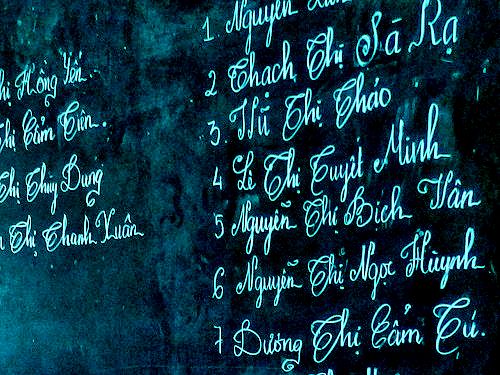 hị Hồng Yến.
Thị Cẩm Tiên.
Thị Thùy Dung
Thị Thanh Xuân
1. Nguyễn
2 Thạch Thị Sà Rạ
3. Thị Thảo
4 Lê Thị Tuyết Minh
5 Nguyễn Thị Bích Vân
6 Nguyễn Thị Ngọc Huỳnh
7 Dương Thị Cẩm Tú.